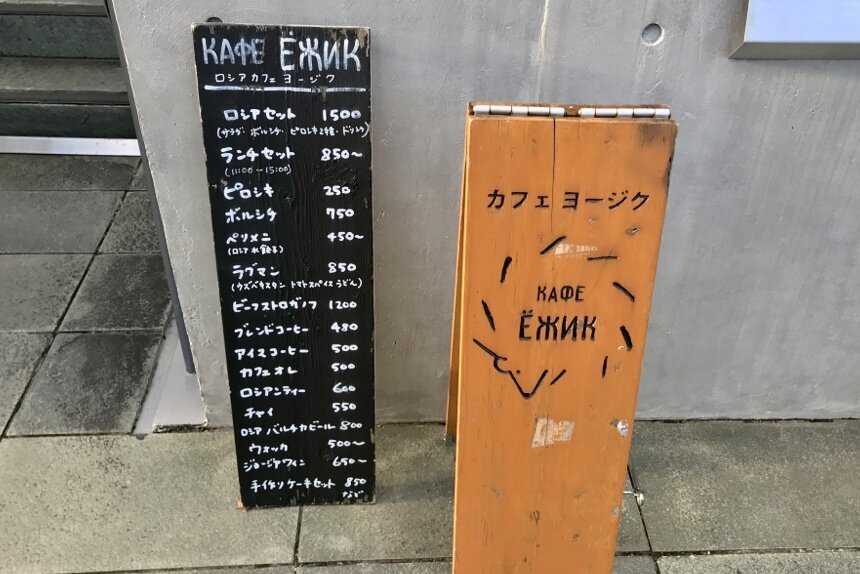 КАФЕ ЁЖИК
ロシアカフェ ヨージク
ロシアセット 1500
(サラダ・ボルシチ・ピロシキ2種・ドリンク)
ランチセット 850〜
(11:00〜15:00)
ピロシキ 250
ボルシチ 750
ペリメニ 450〜
(ロシア水餃子)
ラグマン 850
(ウズベキスタン トマトスパイスうどん)
ビーフストロガノフ 1200
ブレンドコーヒー 480
アイスコーヒー 500
カフェオレ 500
ロシアンティー 600
チャイ 550
ロシア バルチカビール 800
ウォッカ 500〜
ジョージアワイン 650〜
手作りケーキセット 850
など
カフェ ヨージク
КАФЕ
ЁЖИК